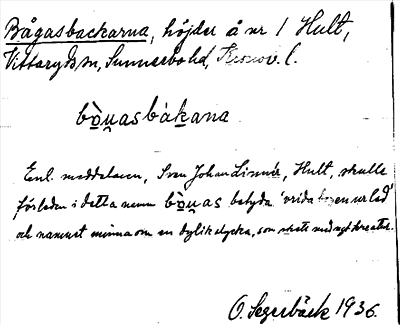 Bågasbackarna, höjder å nr 1 Hult,
Vittaryds sn, Sunnerbo hd, Kronob. l.
bo̱u̯asbáḵana
Enl. meddelaren, Sven Johan Linnér, Hult, skulle
förleden i detta namn bo̱u̯as betyda 'vrida benen ur led'
och namnet minna om en dylik olycka, som skett med kreatur.
O. Segerbäck 1936.